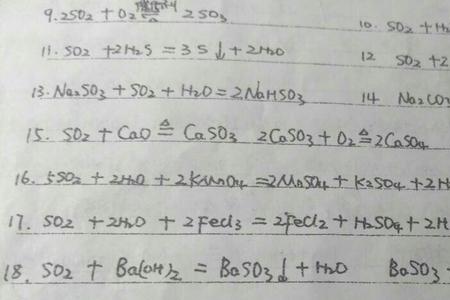 9. 2SO₂ + O₂ ⇌ 2SO₃ 10. SO₂ + H₂
11. SO₂ + 2H₂S = 3S↓ + 2H₂O 12 SO₂ + 2
13. Na₂SO₃ + SO₂ + H₂O = 2NaHSO₃ 14 Na₂CO₃
15. SO₂ + CaO ≜ CaSO₃ 2CaSO₃ + O₂ ≜ 2CaSO₄
16. 5SO₂ + 2H₂O + 2KMnO₄ = 2MnSO₄ + K₂SO₄ + 2H
17. SO₂ + 2H₂O + 2FeCl₃ = 2FeCl₂ + H₂SO₄ + 2H
18. SO₂ + Ba(OH)₂ = BaSO₃↓ + H₂O BaSO₃ +